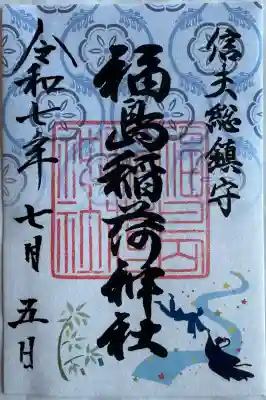 信夫総鎮守
福島稲荷神社
令和七年 七月 五日